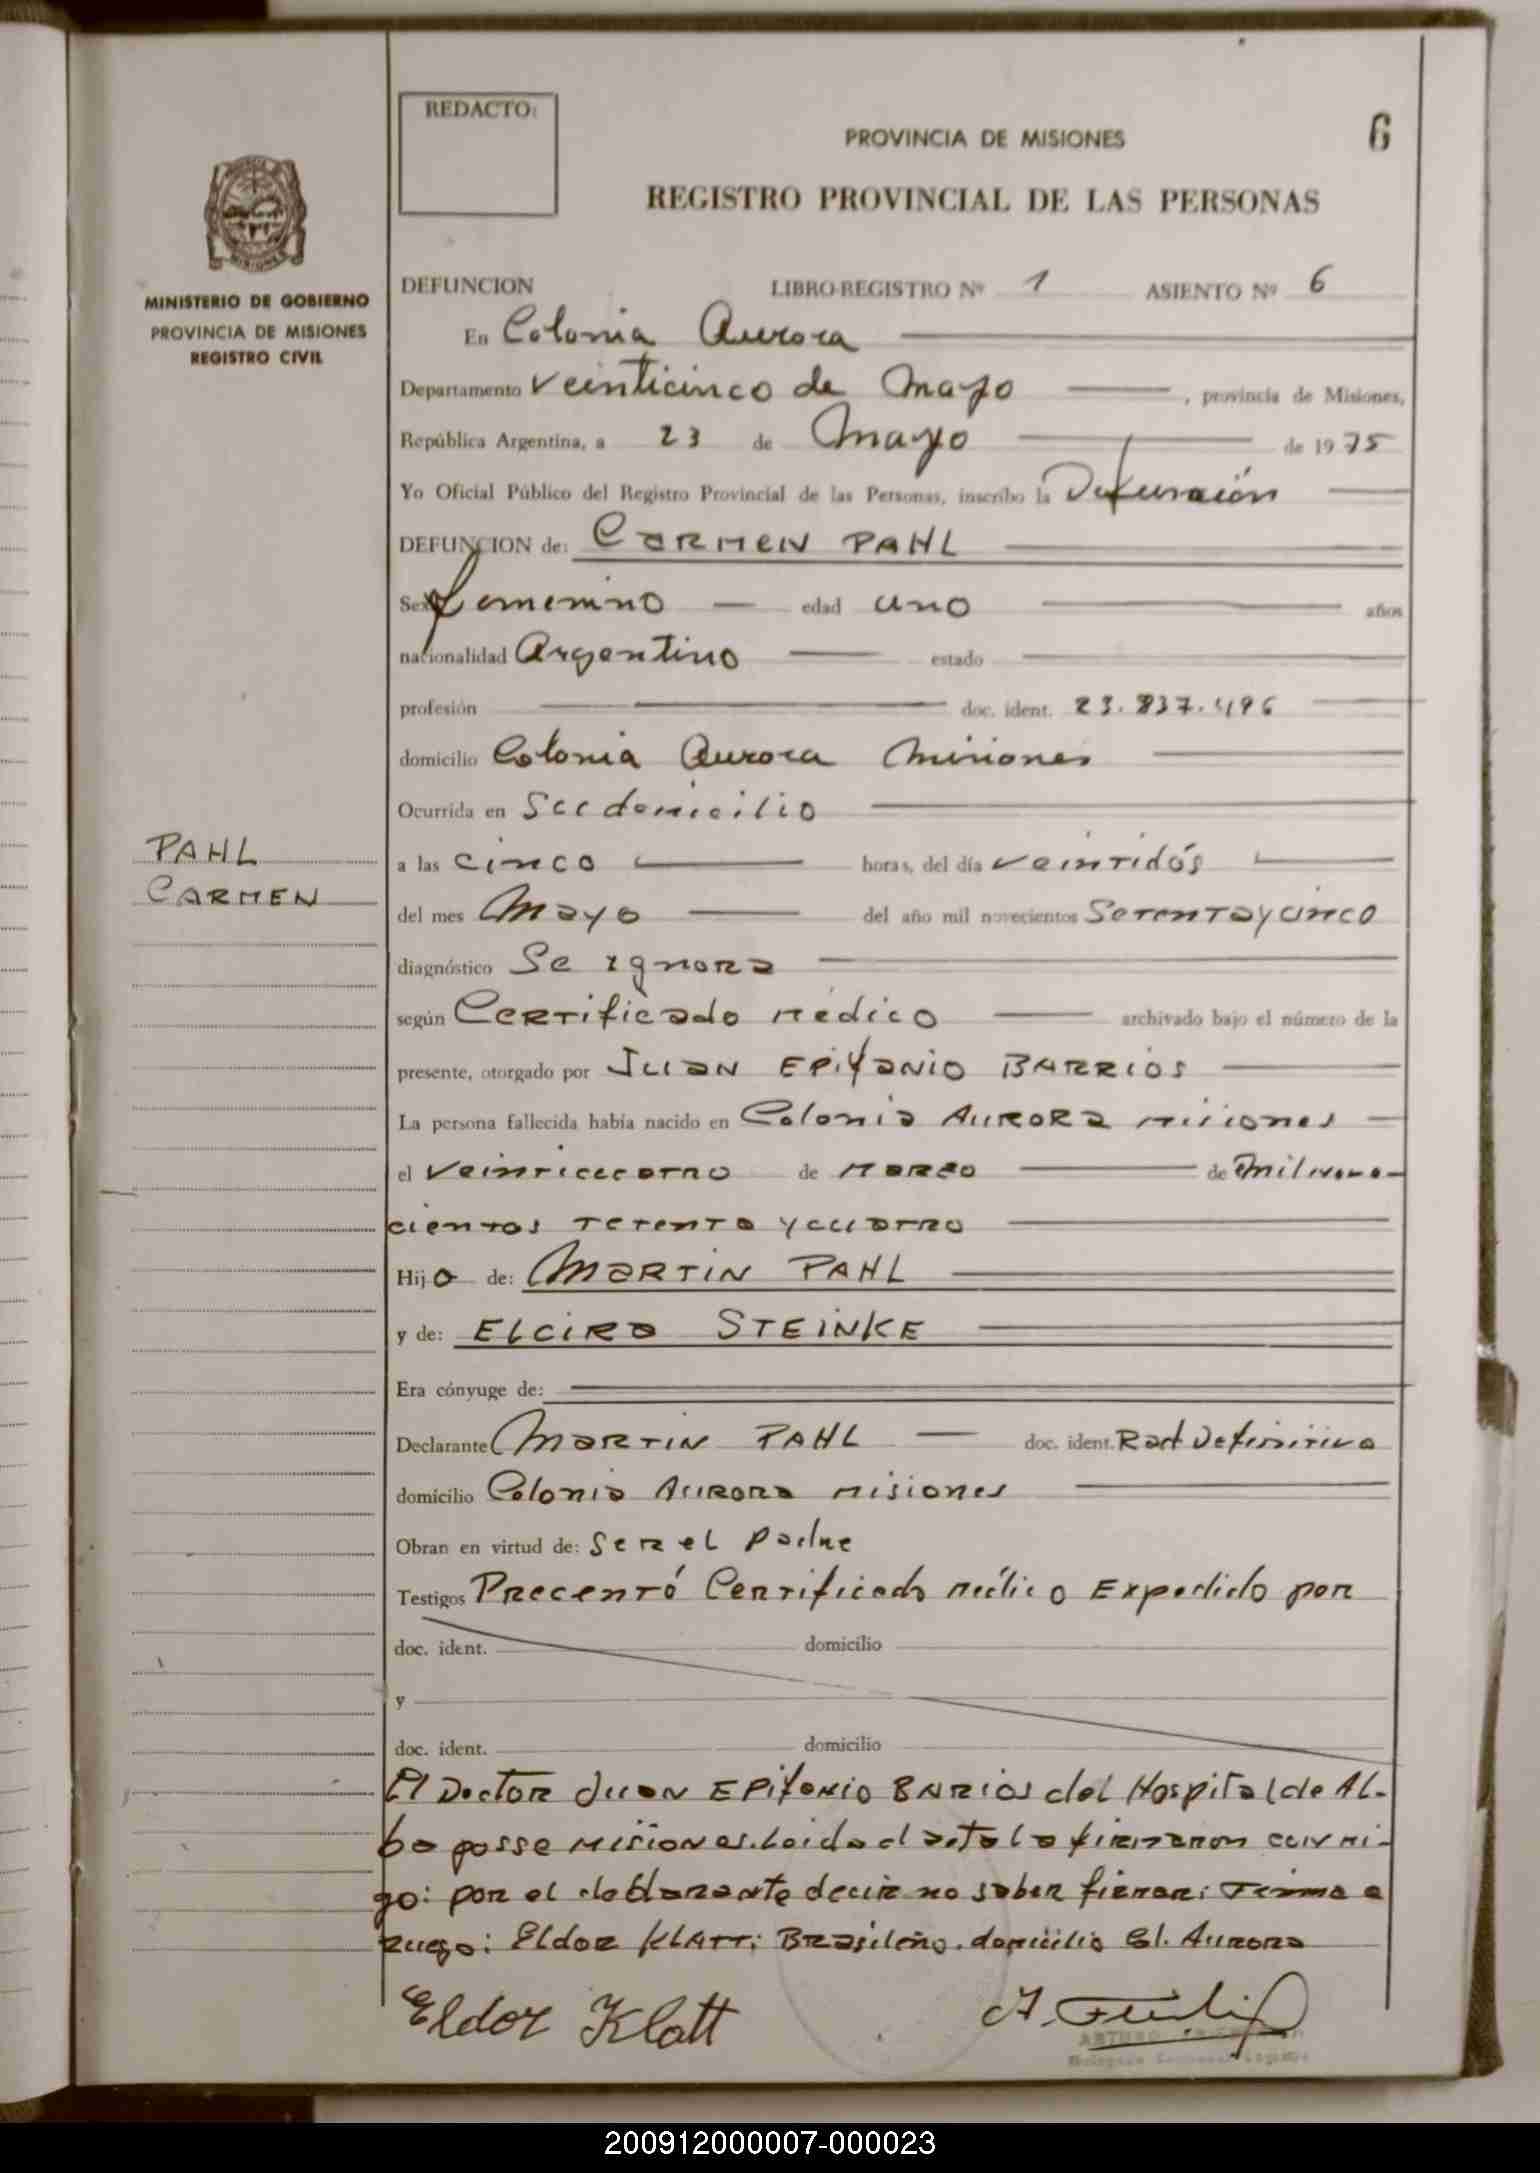 REDACTO:
6
PROVINCIA DE MISIONES
REGISTRO PROVINCIAL DE LAS PERSONAS
MISIONES
MINISTERIO DE GOBIERNO
PROVINCIA DE MISIONES
REGISTRO CIVIL
DEFUNCION LIBRO-REGISTRO Nº 1 ASIENTO Nº 6
En Colonia Aurora
Departamento Veinticinco de Mayo, provincia de Misiones,
República Argentina, a 23 de Mayo de 1975
Yo Oficial Público del Registro Provincial de las Personas, inscribo la Defunción
DEFUNCION de: CARMEN PAHL
Sexo femenino edad uno años
nacionalidad Argentino estado
profesión doc. ident. 23.837.496
domicilio Colonia Aurora Misiones
Ocurrida en Su domicilio
PAHL
CARMEN
a las cinco horas, del día veintidós
del mes Mayo del año mil novecientos Setenta y cinco
diagnóstico Se ignora
según Certificado Médico archivado bajo el número de la
presente, otorgado por JUAN EPIFANIO BARRIOS
La persona fallecida había nacido en Colonia AURORA Misiones
el Veinticuatro de MARZO de Mil nove-
cientos setenta y cuatro
Hijo de: MARTIN PAHL
y de: ELCIRA STEINKE
Era cónyuge de:
Declarante MARTIN PAHL doc. ident. Rad Definitiva
domicilio Colonia AURORA Misiones
Obran en virtud de: Ser el Padre
Testigos Precentó Certificado Médico Expedido por
doc. ident. domicilio
y
doc. ident. domicilio
El Doctor Juan EPifanio BARIOS del Hospital de AL-
ba posse Misiones. Leida el acta la firmaron conmi-
go: por el declarante decir no saber firmar: Firma a
ruego: Eldor Klatt; Brasileño. domicilio Col. Aurora
Eldor Klatt
200912000007-000023